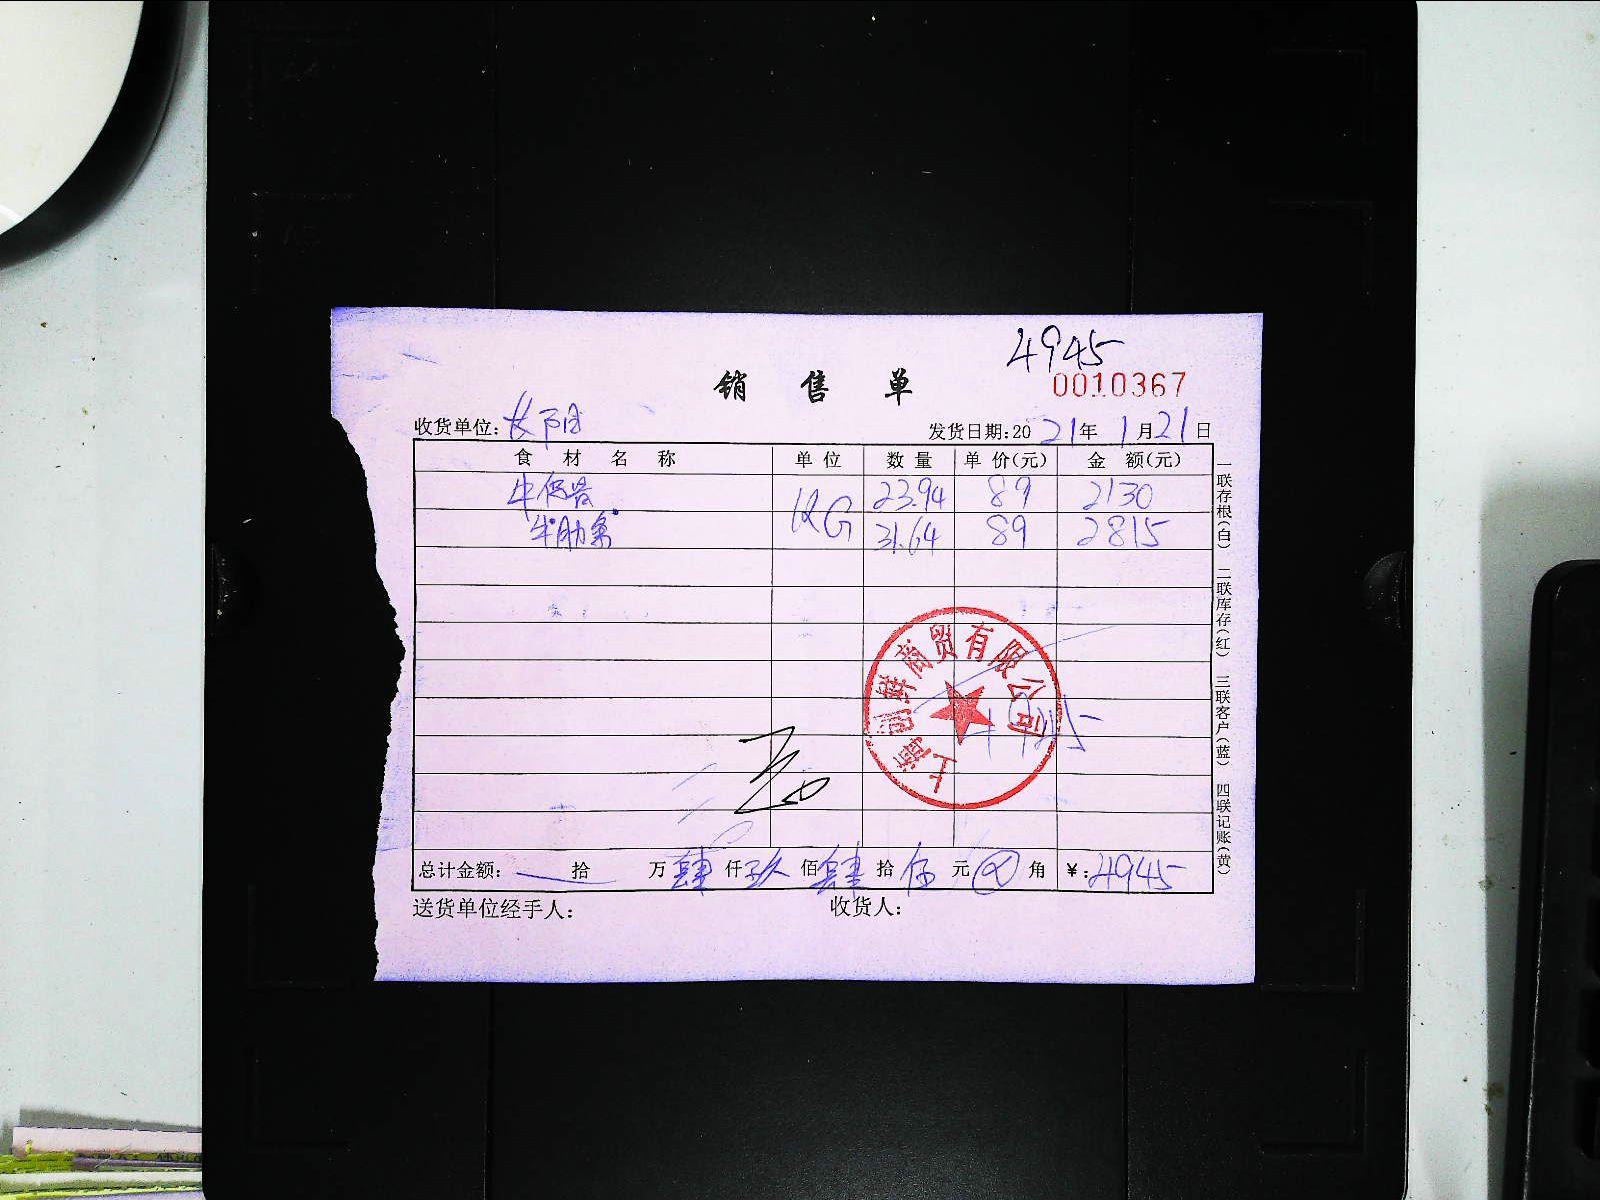 4945
销售单
0010367
收货单位:
发货日期:2021年1月21日
食材名称 单位 数量 单价(元) 金额(元)
KG 23.94 89 2130
牛肋条 31.64 89 2815
上海 鲜商贸有限公司
4945
总计金额: 拾 万肆仟玖佰肆拾伍元 角 ¥:4945
送货单位经手人: 收货人:
一联存根(白) 二联库存(红) 三联客户(蓝) 四联记账(黄)